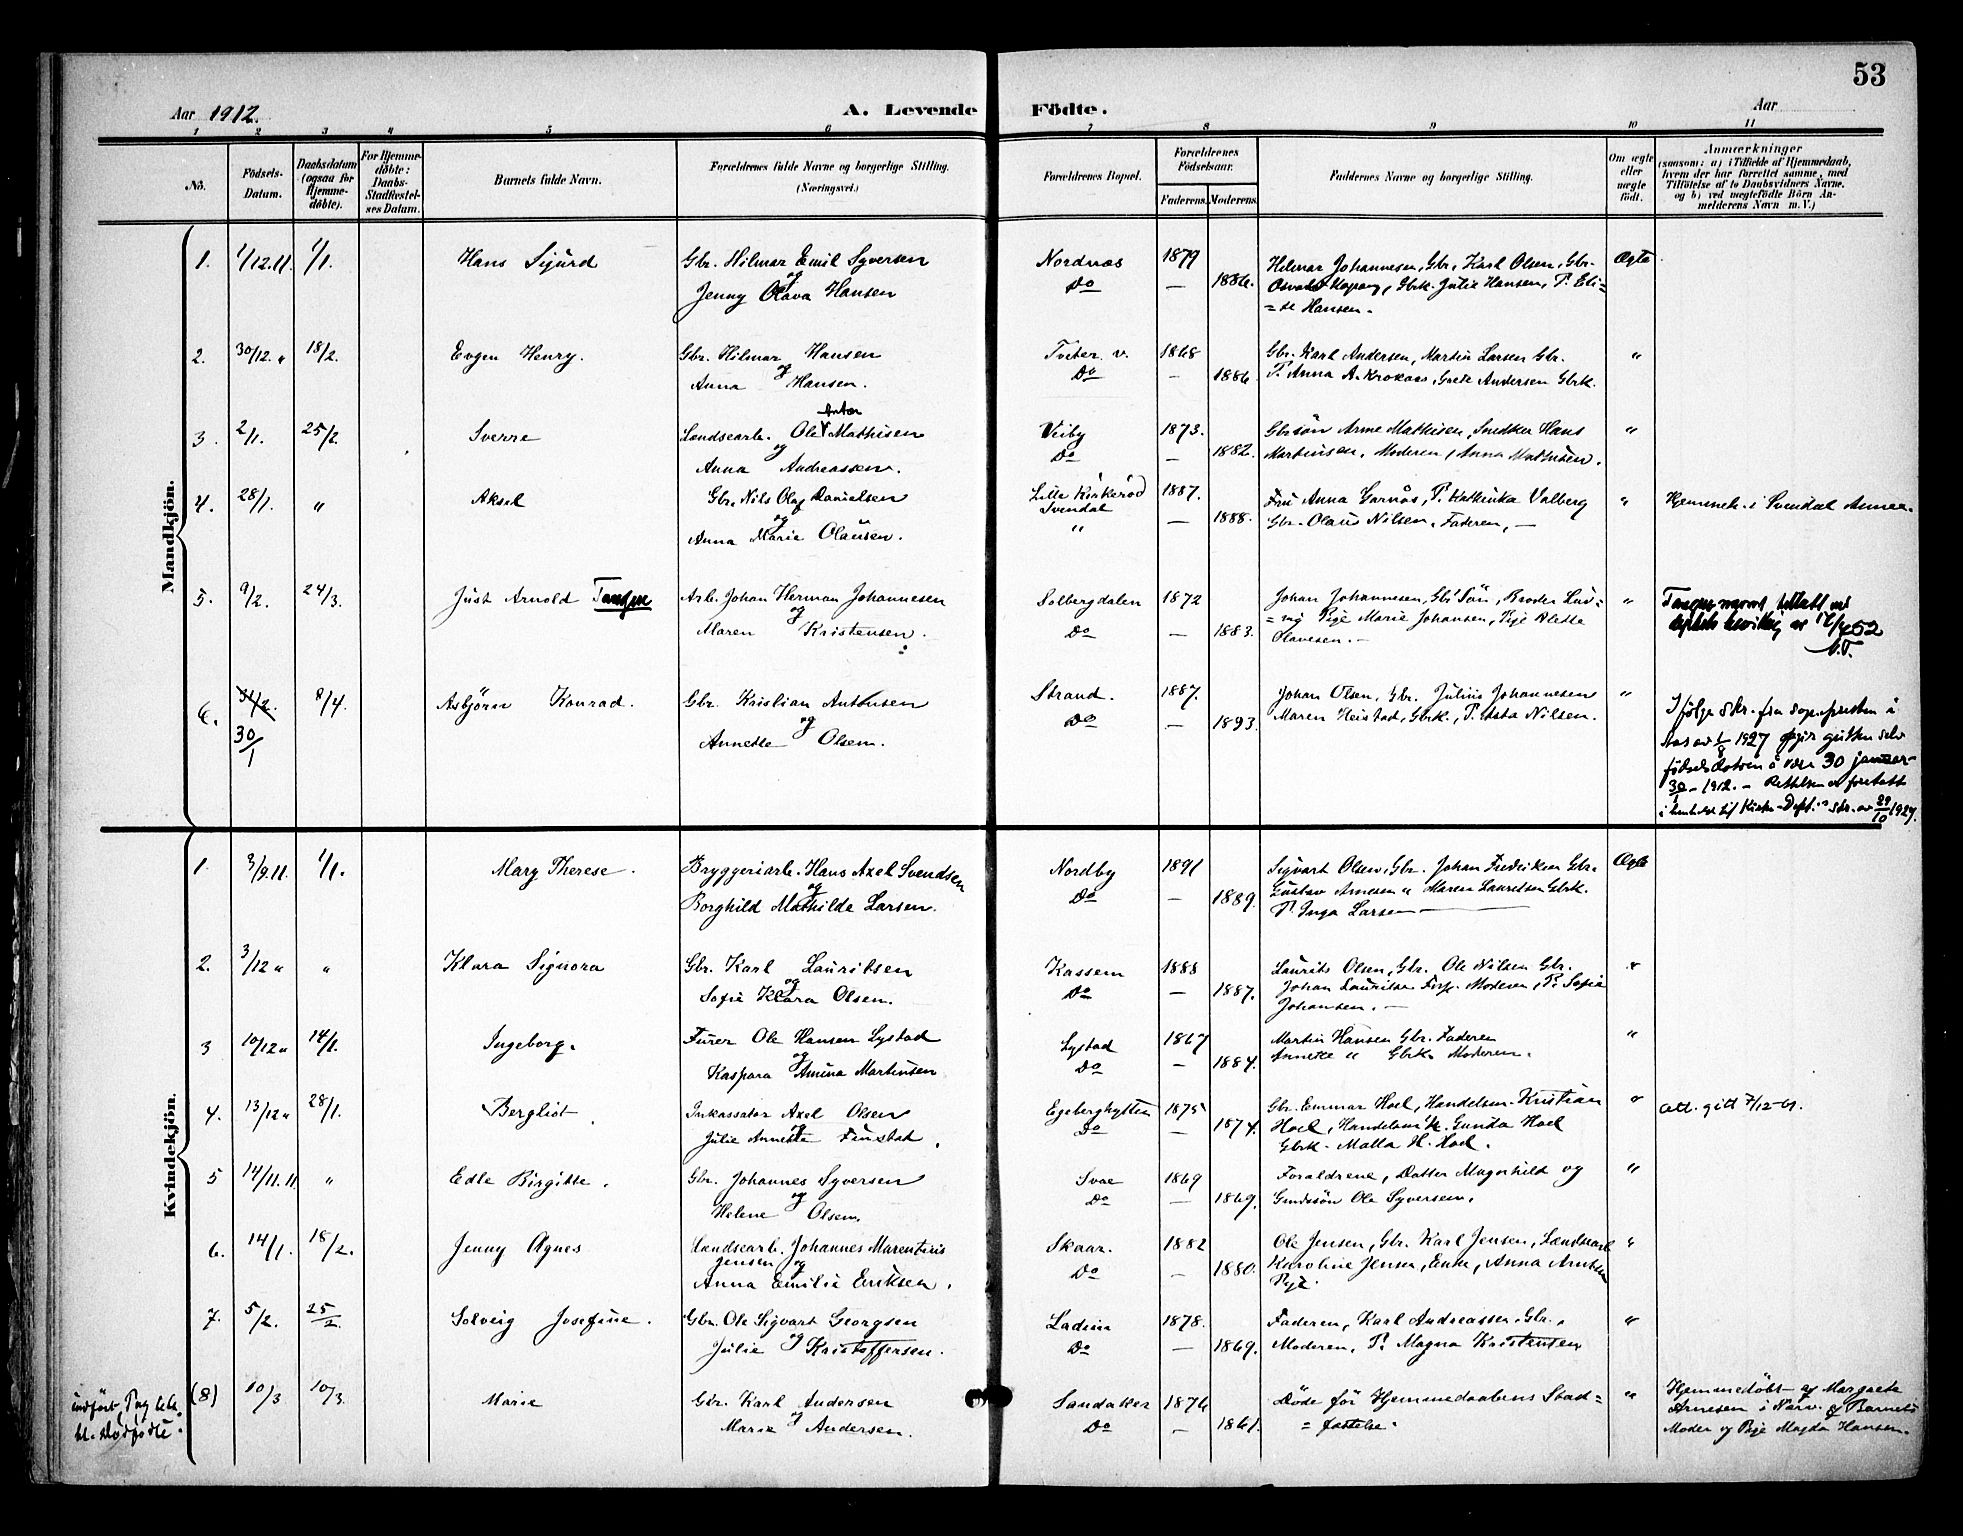 53
Aar 1912. A. Levende Födte. Aar
1 2 3 4 5 6 7 8 9 10 11
No. Födsels-Datum. Daabsdatum (ogsaa for Hjemme-döbte). For Hjemme-döbte: Daabs-Stadfæstel-ses Datum. Barnets fulde Navn. Forældrenes fulde Navne og borgerlige Stilling. (Næringsvei.) Forældrenes Bopæl. Forældrenes Födselsaar. Faderens. Moderens. Faddernes Navne og borgerlige Stilling. Om ægte eller uægte födt. Anmærkninger (saasom: a) i Tilfælde af Hjemmedaab, hvem der har forrettet samme, med Tilföielse af to Daabsvidners Navne, og b) ved uægtefödte Börn An-melderens Navn m. V.)
Mandkjön.
1. 1/12.11. 1/1. Hans Sigurd Gbr. Hilmar Emil Syversen Nordnæs 1879 Helmar Johannesen, Gbr, Karl Olsen, Gbr. Ægte
og
Jenny Olava Hansen Do — 1886. Osvald Kopang, Gbrk. Julie Hansen, P. Eli=
=se Hansen.
2. 30/12. " 18/2. Evgen Henry. Gbr. Hilmar Hansen Tveter v. 1868 Gbr. Karl Andersen, Martin Larsen Gbr. "
og
Anna Hansen. Do — 1886. P. Anna A. Krokaas, Grete Andersen Gbrk.
Anton
3. 2/1. 25/2 Sverre Landsearb. Ole Mathisen Veiby 1873. Gbrsön Arne Mathisen, Snedker Hans "
og
Anna Andreassen. Do — 1882. Martinsen, Moderen, Anna Mathisen.
4. 28/1. " Aksel Gbr. Nils Olaf Danielsen Lille Kirkeröd 1887. Fru Anna Garnås, P. Kathinka Valberg " Hjemmeh. i Svendal Annex.
og Svendal
Anna Marie Olausen. " — 1888. Gbr. Olaus Nilsen, Faderen, —
5. 9/2. 24/3. Just Arnold Tangen Arb. Johan Herman Johannesen Solbergdalen 1872 Johan Johannesen, Gbr Sön, Broder Lud= " Tangen navnet tillatt ved
og
Maren Kristensen. Do — 1883. =vig Pige Marie Johansen, Pige Alette fylkets bevilling av 1952
Olavesen. —
6. 31/2. 8/4. Asbjörn Konrad. Gbr. Kristian Antonsen Strand. 1887. Johan Olsen, Gbr. Julius Johannesen "
30/1 og
Annette Olsen. Do — 1893. Maren Heistad, Gbrk., P. Asta Nilsen.
I følge skr. fra sognepresten i
Aas av 1/8 1927 opgir gutten selv
fødselsdatoen å være 30 januar
30/1 - 1912. - Rettelsen er foretatt
i henhold til Kirke-Dept.s skr. av 29/10 1927.
Kvindekjön.
1. 3/9.11. 1/1. Mary Therese. Bryggeriarb. Hans Axel Svendsen Nordby 1891 Sigvart Olsen, Gbr. Johan Fredriksen Gbr. Ægte
og
Borghild Mathilde Larsen. Do — 1889. Gustav Arnesen " Maren Lauritsen Gbrk.
P. Inga Larsen —
2. 3/12 " " Klara Signora Gbr. Karl Lauritsen Kassem 1888 Laurits Olsen, Gbr. Ole Nilsen Gbr. "
og
Sofie Klara Olsen. Do — 1887. Johan Lauritsen Forp. Moderen, P. Sofie
Johansen. —
3 10/12 " 14/1. Ingeborg. Furer Ole Hansen Lystad Lystad 1867 Martin Hansen Gbr. Faderen "
og
Kaspara Amina Martinsen Do — 1884. Annette " Gbrk. Moderen.
4. 13/12 " 28/1. Bergliot Inkassator Axel Olsen Egeberghytten 1875 Gbr. Emmar Hoel, Handelsm. Kristian " Att. gitt 7/12-61.
og
Julie Annette Finstad. Do — 1874. Hoel, Handelsm. k. Gunda Hoel
Gbrk. Malla H. Hoel.
5 14/11.11. " Edle Birgitte. Gbr. Johannes Syversen Svae 1869 Forældrene, Datter Magnhild og "
og
Helene Olsen. Do — 1869. Gmdssön Ole Syversen.
6. 14/1. 18/2. Jenny Agnes Landsearb. Johannes Marentius Skaar. 1882 Ole Jensen, Gbr. Karl Jensen, Landsearb "
Jensen og
Anna Emilie Eriksen. Do — 1880. Karoline Jensen, Enke, Anna Arntsen
Pige.
7. 5/2. 25/2. Solveig Josefine. Gbr. Ole Sigvart Georgsen Ladim 1878. Faderen, Karl Andreassen, Gbr., "
og
Julie Kristoffersen. Do — 1869. Moderen, P. Magna Kristensen
(8) 10/3 10/3. Marie Gbr. Karl Andersen Sandaker 1876 Döde för Hjemmedaabens Stad= " Hjemmedöbt af Margrete
og
Marie Andersen. Do — 1861. =fæstelse. Arnesen i Nærv. af Barnets
Moder og Pige Magda Hansen.
indfört
bl. dödfödte.